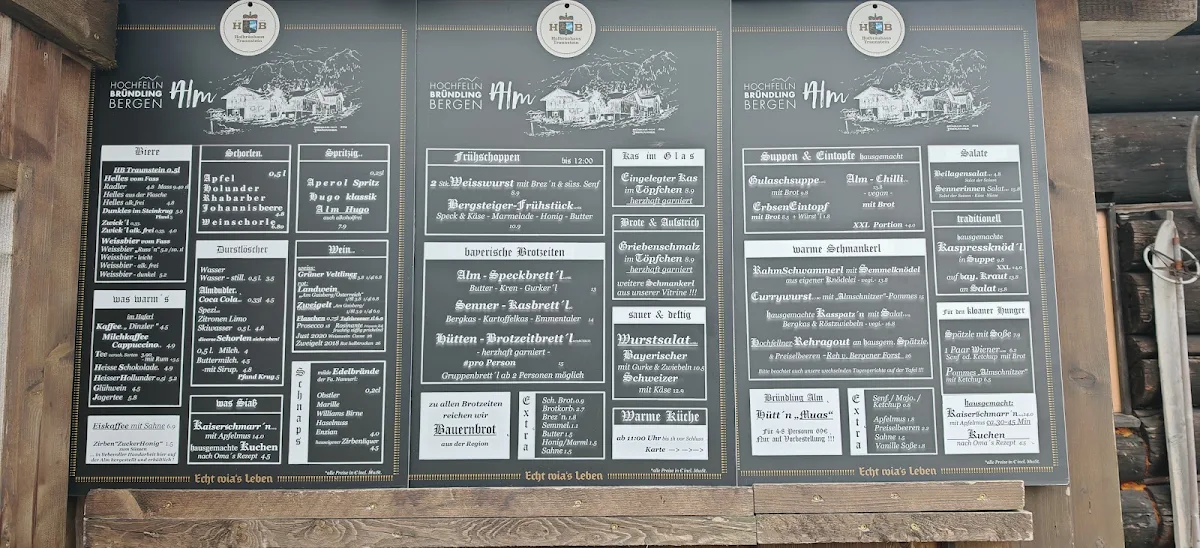 HB
Hofbräuhaus
Traunstein
HOCHFELLN
BRÜNDLING
BERGEN
Alm
Biere
HB Traunstein 0,5l
Helles vom Fass
Radler 4.8
Helles aus der Flasche
Helles alk. frei
Dunkles im Steinkrug
Zwick'l
Zwick'l alk. frei
Weissbier vom Fass
Weissbier
Weissbier - leicht
Weissbier - alk. frei
Weissbier - dunkel 5.2
was warm's
im Haferl
Kaffee „Dinzler" 4.5
Milchkaffee
Cappuccino. 4.9
Tee
mit Rum
Heisse Schokolade. 4.9
HeisserHollunder 5.2
Glühwein 4.5
Jagertee 5.8
Eiskaffee mit Sahne
Zirben"ZuckerHonig"
Schorlen.
0,5 l
Apfel
Holunder
Rhabarber
Johannisbeere
4.8
Weinschorle
Durstlöscher
Wasser
Wasser - still. 0,5 l 3.5
Almdudler.
Coca Cola 0,33l 4.5
Spezi
Zitronen Limo
Skiwasser 0,5 l. 4.8
diverse Schorlen siehe oben!
0,5 l Milch. 4
Buttermilch. 4.5
-mit Sirup. 4.8
Pfand Krug.5
was Siaß
Kaiserschmarr'n
mit Apfelmus 14.0
hausgemachte Kuchen
nach Oma's Rezept 4.5
Spritzig..
Aperol Spritz
Hugo klassik
Alm Hugo
auch alkoholfrei
7.9
Wein..
weiss:
Grüner Veltliner
rot:
Landwein
Zweigelt
Flaschen
Prosecco
Zweigelt 2018
Schnaps
milde Edelbrände
der Fa. Nannerl:
0,2cl
Obstler
Marille
Williams Birne
Haselnuss
Enzian 4.0
hauseigener Zirbenlique
4.5
*alle Preise in € incl. MwSt.
Echt wia's Leben
HB
Hofbräuhaus
Traunstein
HOCHFELLN
BRÜNDLING
BERGEN
Alm
Frühschoppen bis 12:00
2 Stk. Weisswurst mit Brez'n & süss. Senf
8.9
Bergsteiger-Frühstück
Speck & Käse - Marmelade - Honig - Butter
10.9
bayerische Brotzeiten
Alm - Speckbrett'l
Butter - Kren - Gurker'l 13
Senner - Kasbrett'l
Bergkas - Kartoffelkas - Emmentaler 14
Hütten - Brotzeitbrett'l
- herzhaft garniert -
#pro Person
Gruppenbrett'l ab 2 Personen möglich
zu allen Brotzeiten
reichen wir
Bauernbrot
aus der Region
Extra
Sch. Brot 0.9
Brotkorb. 2.7
Brez'n. 1.8
Semmel. 1.1
Butter 1.5
Honig/Marmel. 1.5
Sahne 1.5
Kas im Glas
Eingelegter Kas
im Töpfchen 8.9
herzhaft garniert
Brote & Aufstrich
Griebenschmalz
im Töpfchen 8.9
herzhaft garniert
weitere Schmankerl
aus unserer Vitrine !!!
sauer & heftig
Wurstsalat
Bayerischer
mit Gurke & Zwiebeln 10.5
Schweizer
mit Käse 12.9
Warme Küche
ab 11:00 Uhr bis 1h vor Schluss
Karte --> --> -->
*alle Preise in € incl. MwSt.
Echt wia's Leben
HB
Hofbräuhaus
Traunstein
HOCHFELLN
BRÜNDLING
BERGEN
Alm
Suppen & Eintopfe hausgemacht
Gulaschsuppe
mit Brot 8.9
ErbsenEintopf
mit Brot 8.5 + Würst'l 1.8
Alm - Chilli
- vegan -
mit Brot
XXL Portion +4.0
warme Schmankerl
RahmSchwammerl mit Semmelknödel
aus eigener Knödelei - vegi. - 13.8
Currywurst mit "Almuschnitzer"-Pommes
hausgemachte Kasspatz'n mit Salat
Bergkas & Röstzwiebeln - vegi. - 16.8
Hochfellner-Rehragout an hausgem. Spätzle
& Preiselbeeren - Reh v. Bergener Forst
Bitte beachtet auch unsere wechselnden Tagesgerichte auf der Tafel !!!
Bründling Alm
Hütt'n „Muas"
Für 4-8 Personen 69€
Nur auf Vorbestellung !!!
Extra
Senf / Majo. /
Ketchup 0.8
Apfelmus 1.8
Preiselbeeren 2.2
Sahne 1.5
Vanille Soße
Salate
Beilagensalat
Salat der Saison
Sennerinnen Salat
traditionell
hausgemachte
Kaspressknöd'l
in Suppe 9.8
XXL +4.0
auf bay. Kraut 13.8
an Salat 15.8
Für den kloaner Hunger
Spätzle mit Soße 7.9
1 Paar Wiener
Senf od. Ketchup mit Brot
Pommes „Almschnitzer"
mit Ketchup 6.5
hausgemacht:
Kaiserschmarr'n 14.0
mit Apfelmus ca. 30-45 Min
Kuchen
nach Oma's Rezept
*alle Preise in € incl. MwSt.
Echt wia's Leben